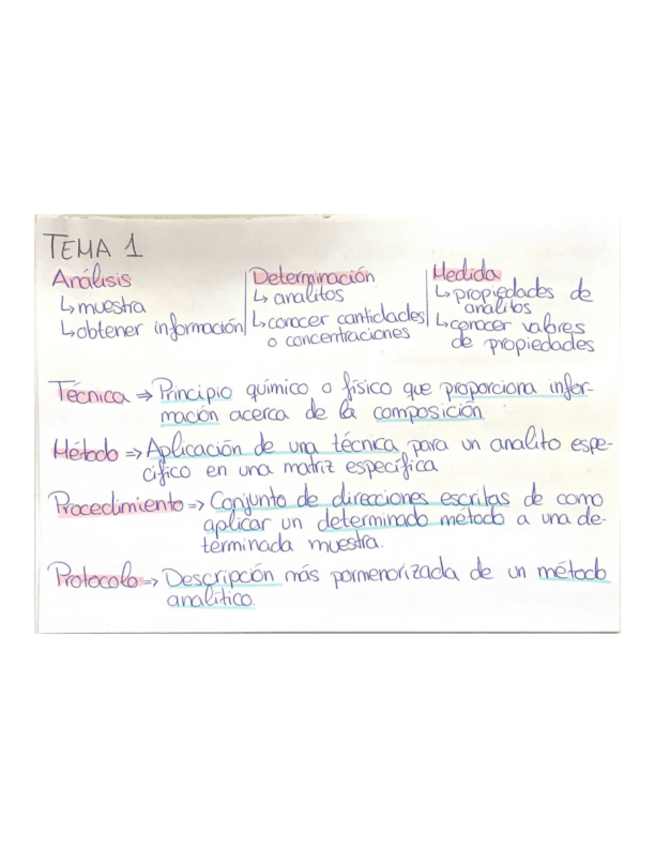 TEMA 1
Análisis
↳ muestra
↳ obtener información
Determinación
↳ analitos
↳ conocer cantidades
o concentraciones
Medida
↳ propiedades de
analitos
↳ conocer valores
de propiedades
Técnica → Principio químico o físico que proporciona infor-
mación acerca de la composición
Método => Aplicación de una técnica para un analito espe-
cífico en una matriz específica
Procedimiento => Conjunto de direcciones escritas de como
aplicar un determinado método a una de-
terminada muestra.
Protocolo => Descripción más pormenorizada de un método
analítico.